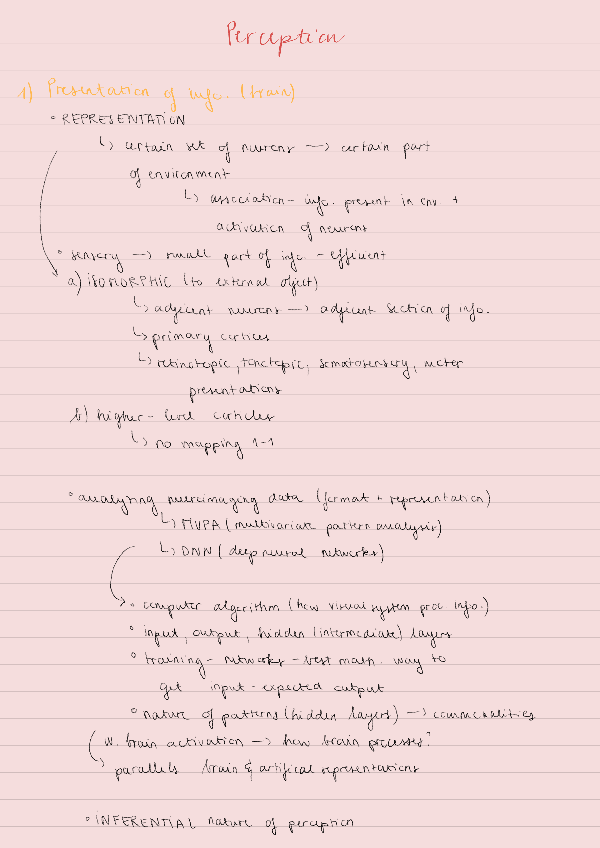 Perception
1) Presentation of info. (brain)
° REPRESENTATION
↳ certain set of neurons → certain part
of environment
↳ association - info. present in env. +
activation of neurons
° sensory → small part of info - efficient
a) ISOMORPHIC (to external object)
↳ adjecent neurons → adjecent section of info.
↳ primary cortices
↳ retinotopic, tonotopic, somatosensory, motor
presentations
b) higher-level corticles
↳ no mapping 1-1
° analyzing neuroimaging data (format + representation)
↳ MVPA (multivariate pattern analysis)
↳ DNN (deep neural networks)
° computer algorithm (how visual system proc info.)
° input, output, hidden (intermediate) layers
° training - networks - best math. way to
get input - expected output
° nature of patterns (hidden layers) → commonalities
w. brain activation → how brain processes?
parallels brain & artifical representations
° INFERENTIAL nature of perception